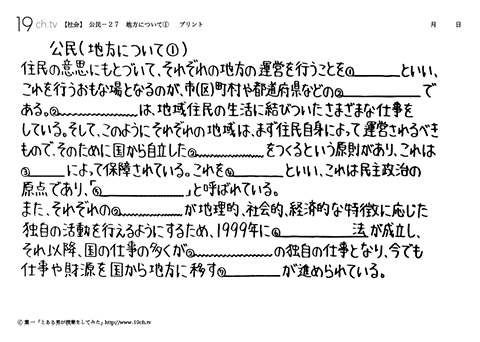 19ch.tv 【社会】 公民-27 地方について① プリント 月 日
公民(地方について①)
住民の意思にもとづいて、それぞれの地方の運営を行うことを①________といい、
これを行うおもな場となるのが、市(区)町村や都道府県などの②________で
ある。②________は、地域住民の生活に結びついたさまざまな仕事を
している。そして、このようにそれぞれの地域は、まず住民自身によって運営されるべき
もので、そのために国から自立した②________をつくるという原則があり、これは
③________によって保障されている。これを④________といい、これは民主政治の
原点であり、「⑤________」と呼ばれている。
また、それぞれの②________が地理的、社会的、経済的な特徴に応じた
独自の活動を行えるようにするため、1999年に⑥________法が成立し、
それ以降、国の仕事の多くが②________の独自の仕事となり、今でも
仕事や財源を国から地方に移す⑦________が進められている。
Ⓒ葉一「とある男が授業をしてみた」http://www.19ch.tv